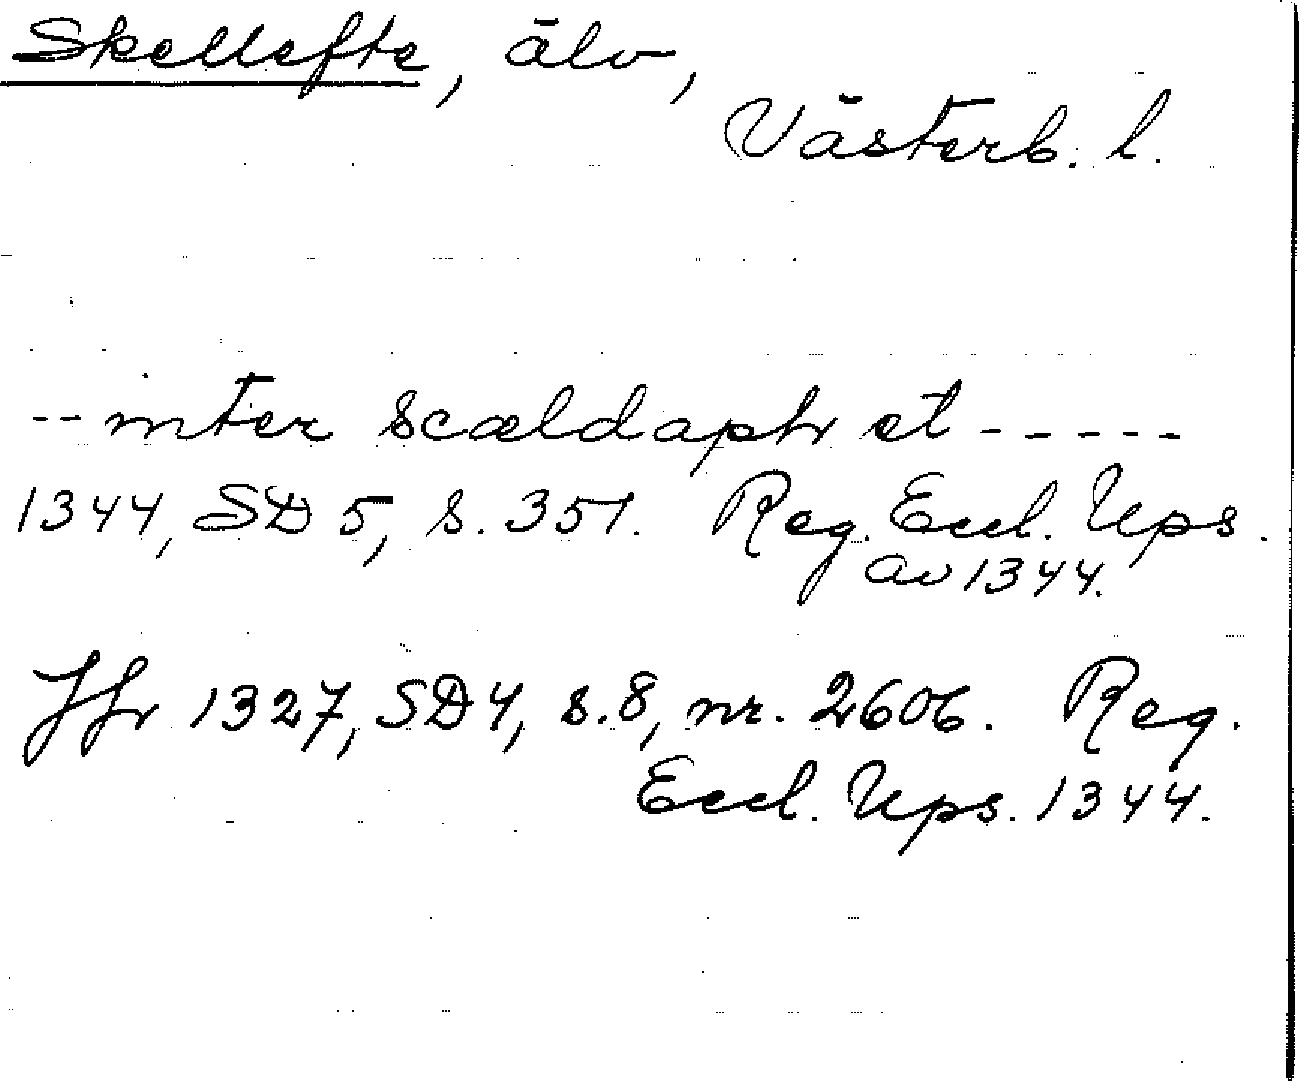 Skellefte, älv,
Västerb. l.
-- inter scældapht et -----
1344, SD 5, s. 351. Reg. Eccl. Ups.
av 1344.
Jfr 1327, SD 4, s. 8, nr. 2606. Reg.
Eccl. Ups. 1344.